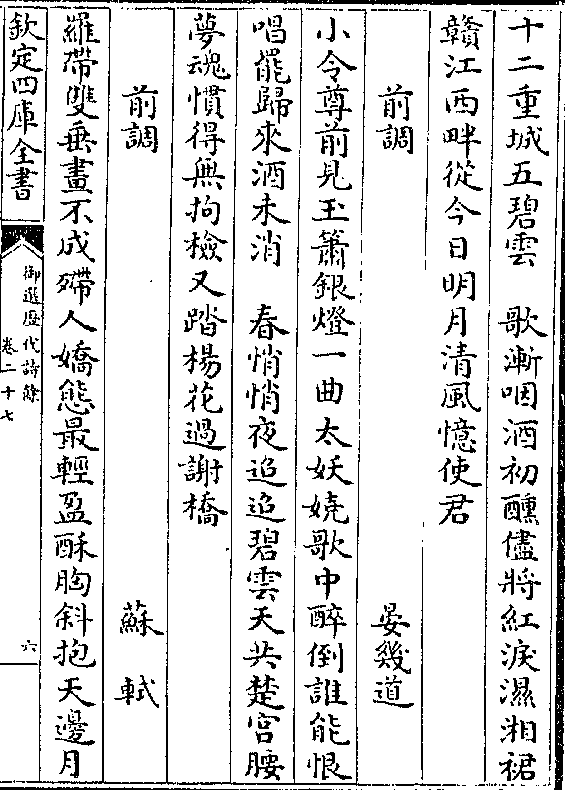 十二重城五碧雲　歌漸咽酒初醺儘將紅淚濕湘裙
贛江西畔從今日明月清風憶使君
前調　晏幾道
小令尊前見玉簫銀燈一曲太妖嬈歌中醉倒誰能恨
唱罷歸來酒未消　春悄悄夜迢迢碧雲天共楚宮腰
夢魂慣得無拘檢又踏楊花過謝橋
前調　蘇軾
羅帶雙垂畫不成殢人嬌態最輕盈酥胸斜抱天邊月
欽定四庫全書
御選歷代詩餘
卷二十七
六